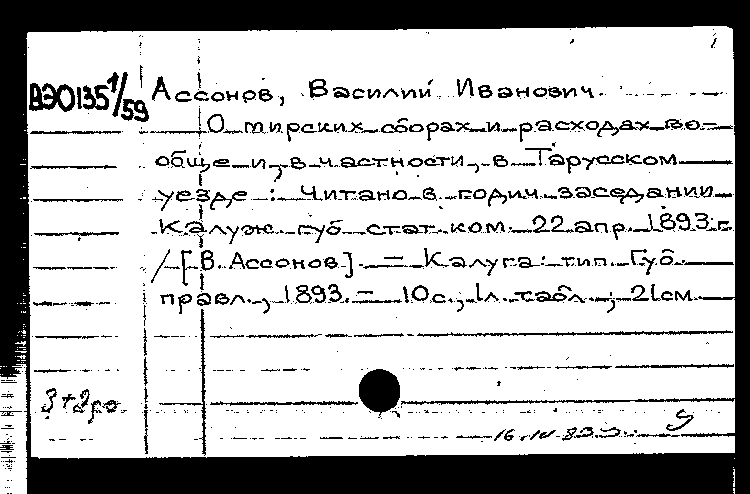 ВЭО135 1/59 Ассонов, Василий Иванович.
О мирских сборах и расходах во-
обще и, в частности, в Тарусском
уезде : Читано в годич. заседании
Калуж. губ. стат. ком. 22 апр. 1893 г.
/ [В. Ассонов]. – Калуга : тип. Губ.
правл., 1893. – 10 с., 1 л. табл. ; 21 см.